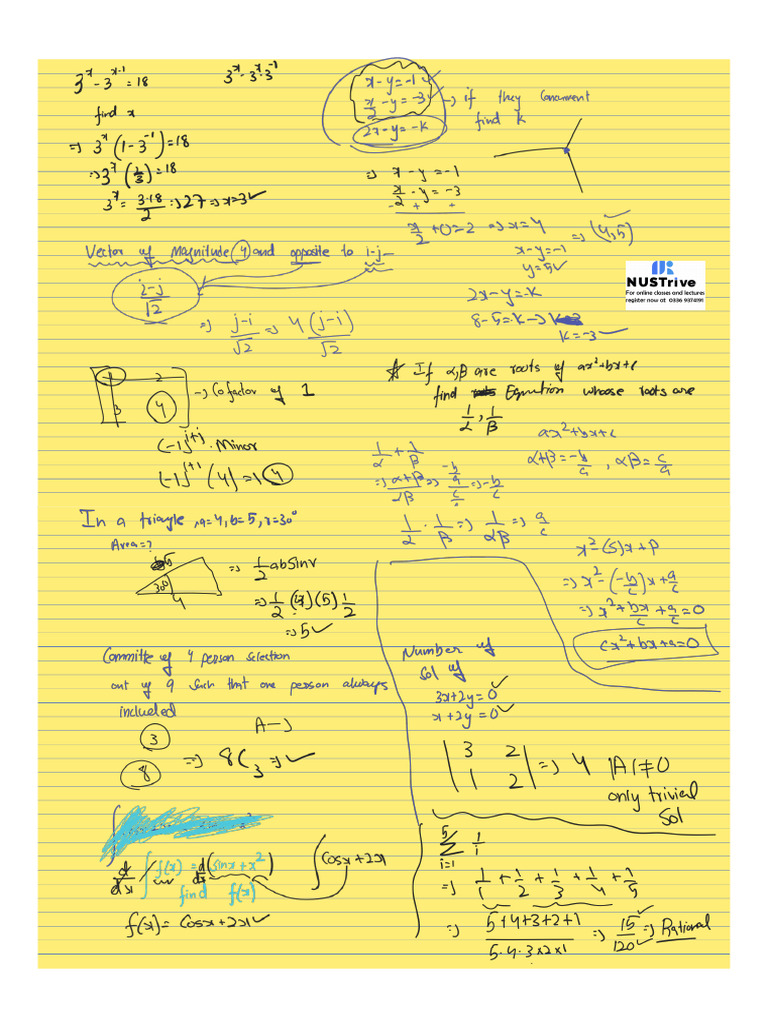 3^x - 3^(x-1) = 18
3^x - 3^x·3^-1
find x
=> 3^x (1 - 3^-1) = 18
=> 3^x (2/3) = 18
3^x = 3·18/2 => 27 => x=3 ✓
x - y = -1 ✓
x/2 - y = -3 ✓
2x - y = -k
-> if they concurrent
find k
=> x - y = -1
x/2 - y = -3
- + +
x/2 + 0 = 2 => x = 4 => (4,5)
x - y = -1
y = 5 ✓
2x - y = -k
8 - 5 = -k
k = -3 ✓
Vector of Magnitude 4 and opposite to i-j
i-j/√2
=> j-i/√2 => 4(j-i)/√2
NUSTrive
For online classes and lectures
register now at 0336 9374191
1 2
3 4
-> Cofactor of 1
(-1)^(i+j) · Minor
(-1)^(1+1) (4) = 1 4
If α,β are roots of ax²+bx+c
find Equation whose roots are
1/α, 1/β
ax²+bx+c
α+β = -b/a, αβ = c/a
1/α + 1/β
=> α+β/αβ => -b/a / c/a => -b/c
1/α · 1/β => 1/αβ => a/c
x² - (S)x + P
=> x² - (-b/c)x + a/c
=> x² + bx/c + a/c = 0
cx² + bx + a = 0
In a triangle, a=4, b=5, r=30°
Area = ?
5
30°
4
=> 1/2 ab sin r
=> 1/2 (4)(5) 1/2
=> 5 ✓
Committe of 4 person selection
out of 9 such that one person always
included
A-J
3
8
=> 8C3 => ✓
Number of
Sol of
3x+2y=0 ✓
x+2y=0 ✓
|3 2|
|1 2| => 4 |A| ≠ 0
only trivial
Sol
d/dx ∫ f(x) = d/dx (sinx + x²)
find f(x)
∫ cosx + 2x
f(x) = cosx + 2x ✓
5
Σ 1/i
i=1
=> 1/1 + 1/2 + 1/3 + 1/4 + 1/5
=> 5+4+3+2+1/5·4·3×2×1 => 15/120 => Rational